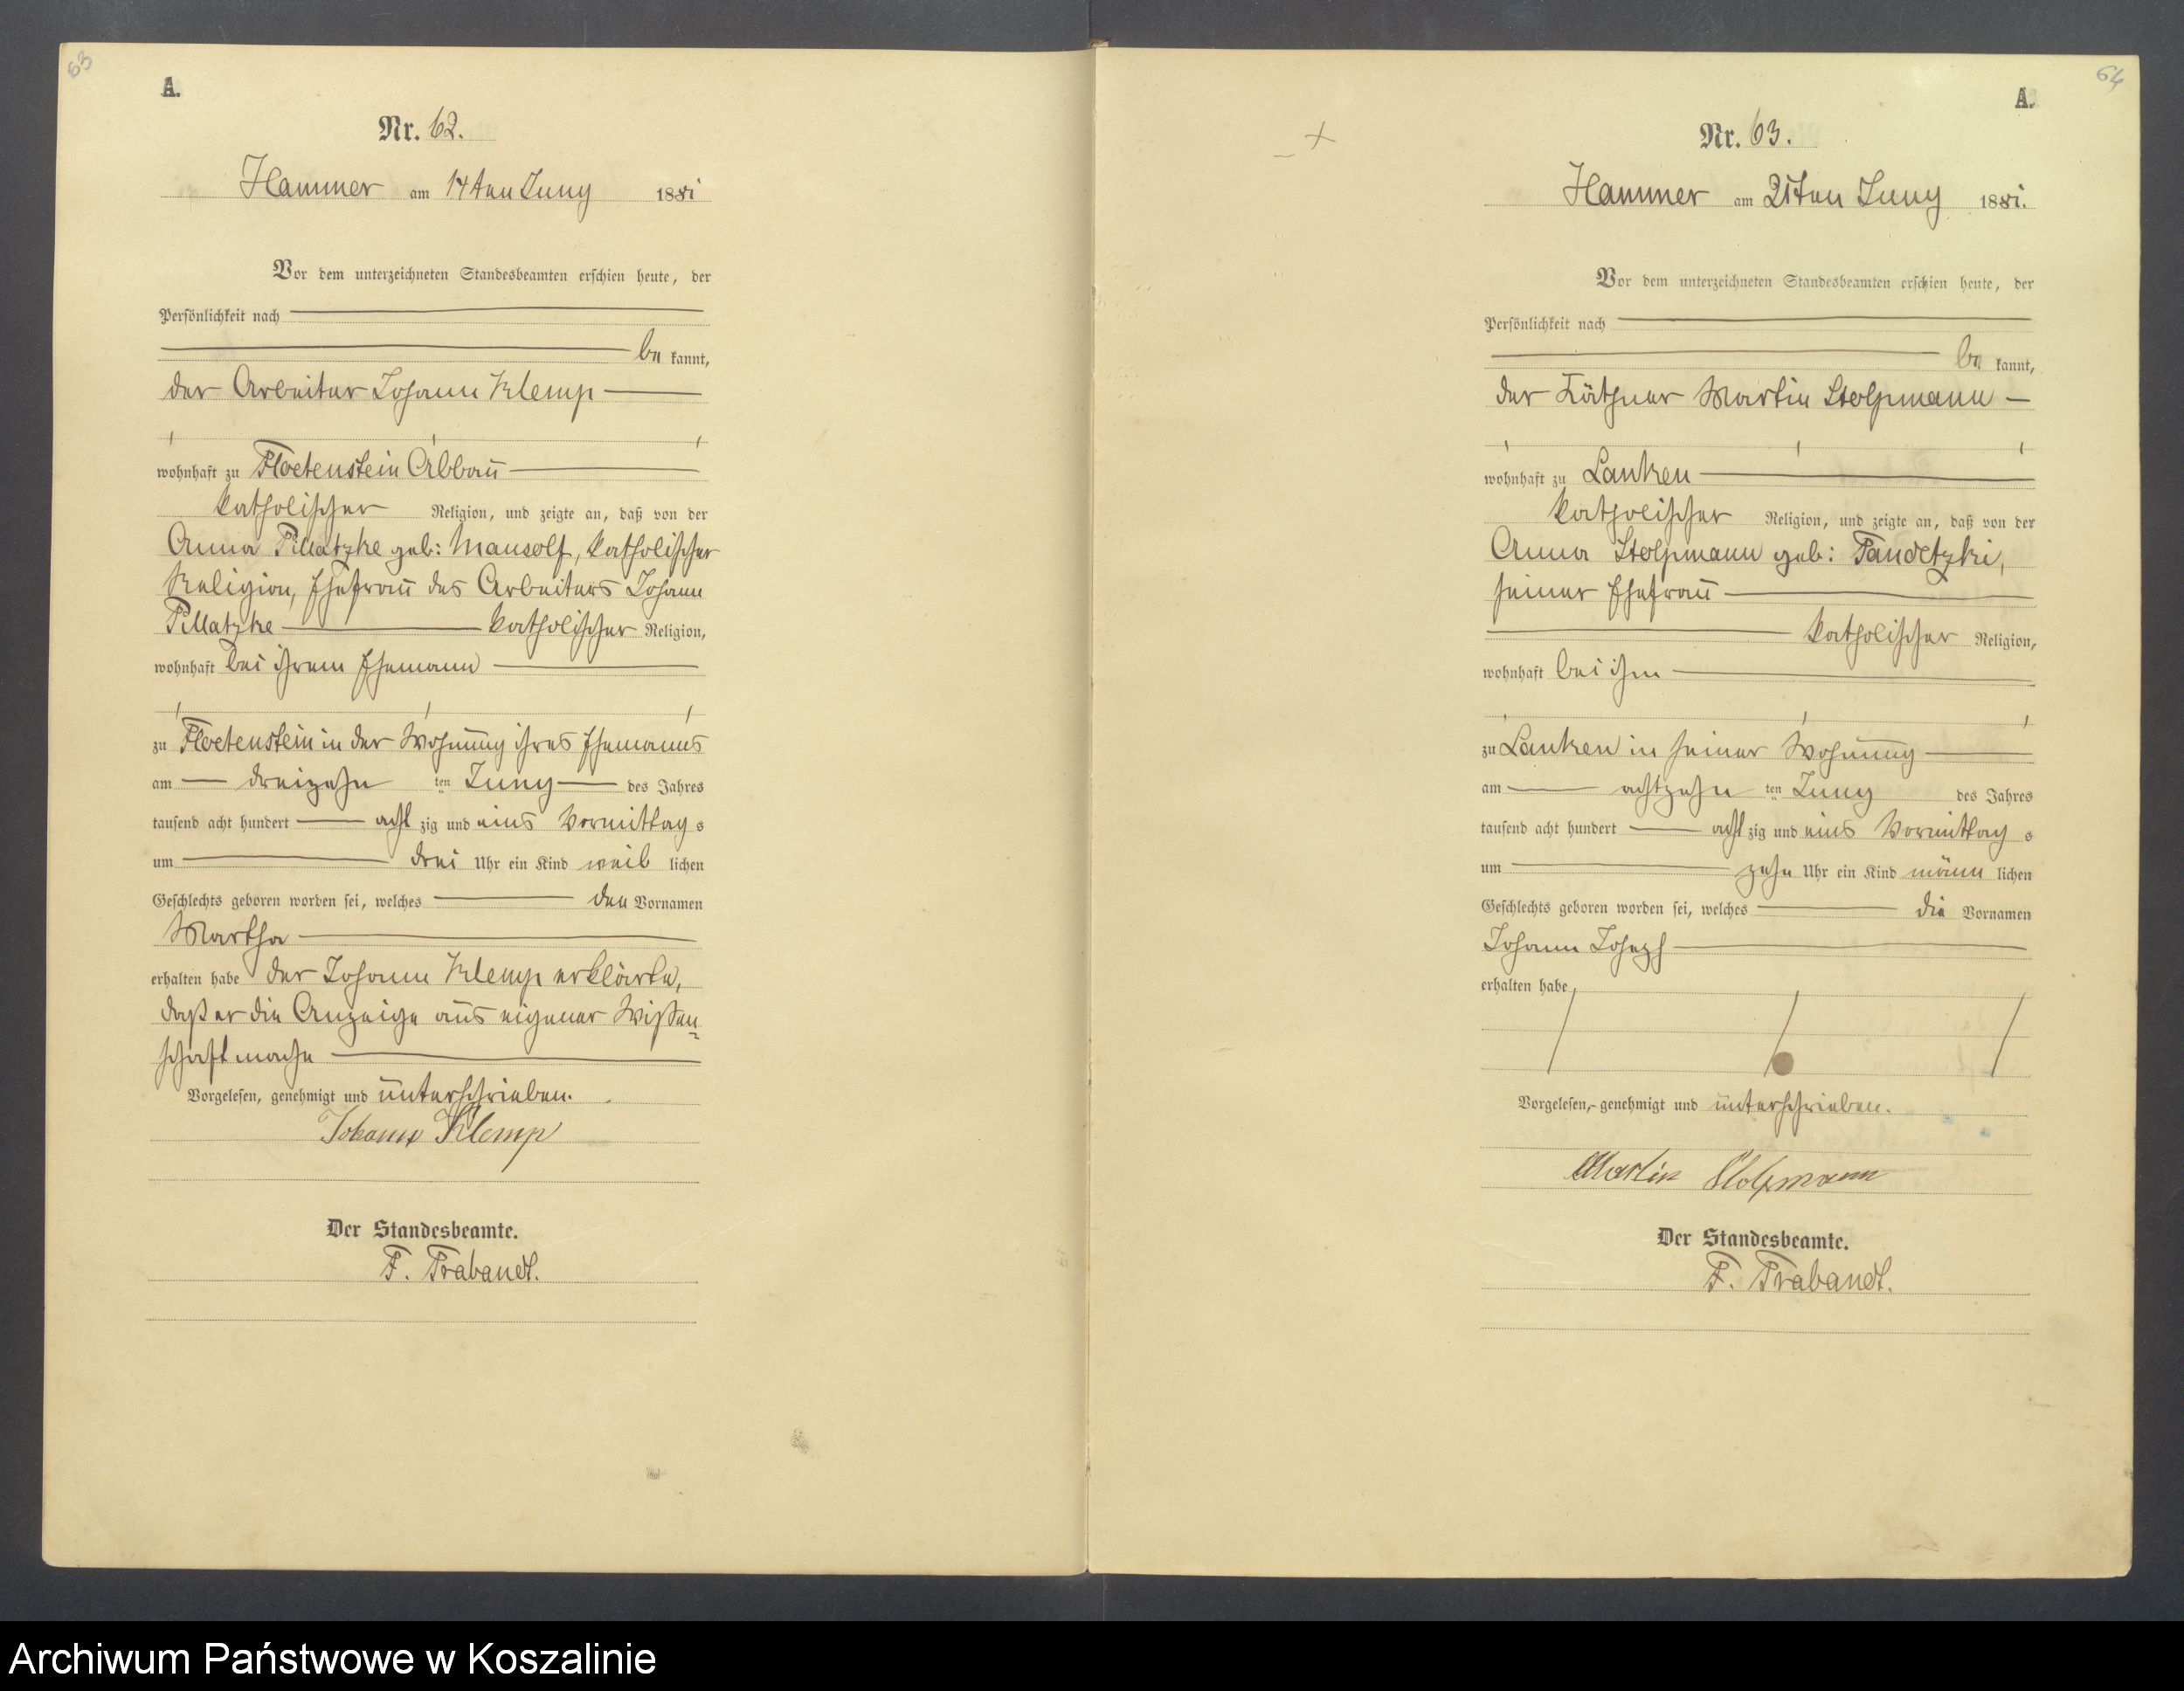 63
A.
Nr. 62.
Hammer am 14ten Juny 1881
Vor dem unterzeichneten Standesbeamten erschien heute, der
Persönlichkeit nach
be kannt,
der Arbeiter Johann Klemp
wohnhaft zu Floetenstein Abbau
katholischer Religion, und zeigte an, daß von der
Anna Pillatzke geb: Mausolf, katholischer
Religion, Ehefrau des Arbeiters Johann
Pillatzke katholischer Religion,
wohnhaft bei ihrem Ehemann
zu Floetenstein in der Wohnung ihres Ehemanns
am dreizehn ten Juny des Jahres
tausend acht hundert acht zig und eins Vormittag s
um drei Uhr ein Kind weib lichen
Geschlechts geboren worden sei, welches den Vornamen
Martha
erhalten habe der Johann Klemp erklärte,
daß er die Anzeige aus eigener Wißen
schaft mache
Vorgelesen, genehmigt und unterschrieben.
Johann Klemp
Der Standesbeamte.
F. Trabandt.
64
A.
Nr. 63.
Hammer am 21ten Juny 1881.
Vor dem unterzeichneten Standesbeamten erschien heute, der
Persönlichkeit nach
be kannt,
der Käthner Martin Stolpmann
wohnhaft zu Lanken
katholischer Religion, und zeigte an, daß von der
Anna Stolpmann geb: Pandetzki,
seiner Ehefrau
katholischer Religion,
wohnhaft bei ihm
zu Lanken in seiner Wohnung
am achtzehn ten Juny des Jahres
tausend acht hundert acht zig und eins Vormittag s
um zehn Uhr ein Kind männ lichen
Geschlechts geboren worden sei, welches die Vornamen
Johann Joseph
erhalten habe
Vorgelesen, genehmigt und unterschrieben.
Martin Stolpmann
Der Standesbeamte.
F. Trabandt.
Archiwum Państwowe w Koszalinie